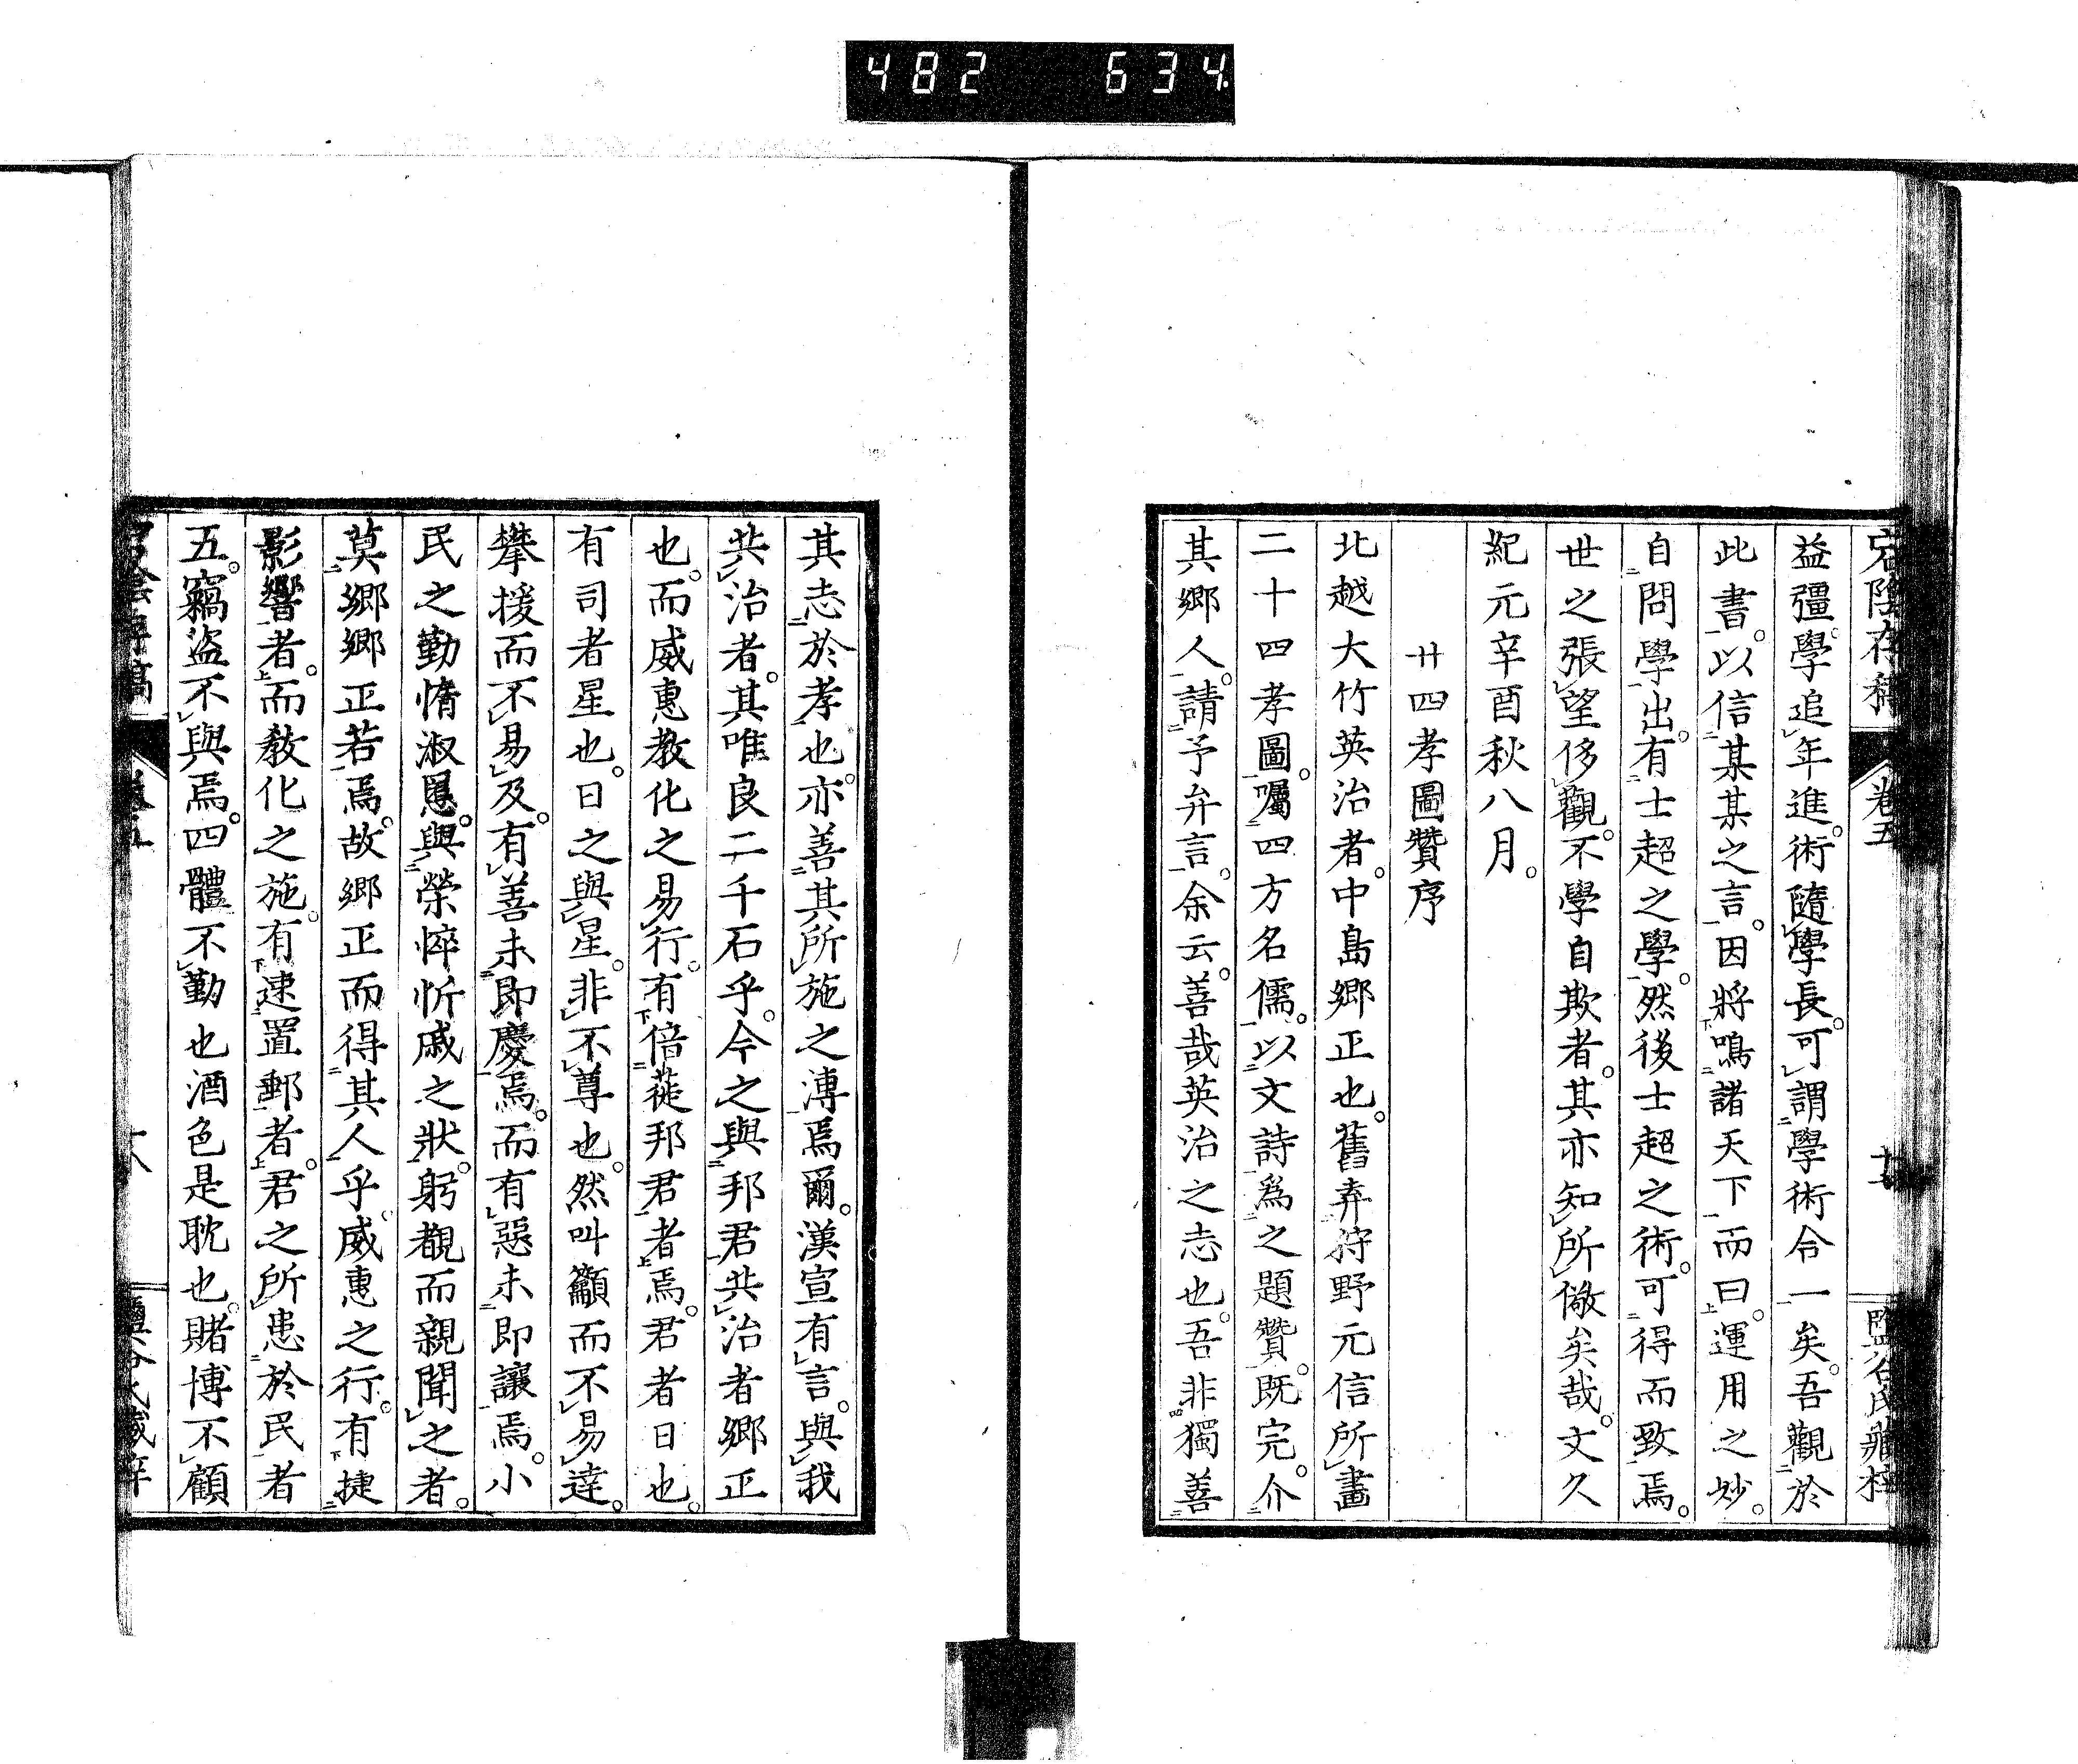 482 634
宕陰存稿 卷五 鹽谷氏藏梓
益彊。學追年進。術隨學長。可謂學術合一矣。吾觀於
此書。以信某某之言。因將鳴諸天下而曰。運用之妙。
自問學出。有士超之學。然後士超之術。可得而致焉。
世之張望侈觀。不學自欺者。其亦知所儆矣哉。文久
紀元辛酉秋八月。
廿四孝圖贊序
北越大竹英治者。中島鄉正也。舊弆狩野元信所畫
二十四孝圖。囑四方名儒。以文詩爲之題贊。既完。介
其鄉人。請予弁言。余云。善哉英治之志也。吾非獨善
其志於孝也。亦善其所施之溥焉爾。漢宣有言。與我
共治者。其唯良二千石乎。今之與邦君共治者鄉正
也。而威惠教化之易行。有倍蓰邦君者焉。君者日也。
有司者星也。日之與星。非不尊也。然叫籲而不易達。
攀援而不易及。有善未即慶焉。而有惡未即讓焉。小
民之勤惰淑慝。與榮悴忻戚之狀。躬覩而親聞之者。
莫鄉鄉正若焉。故鄉正而得其人乎。威惠之行。有捷
影響者。而教化之施。有速置郵者。君之所患於民者
五。竊盜不與焉。四體不勤也酒色是耽也。賭博不顧
卷五 十八 鹽谷氏藏梓